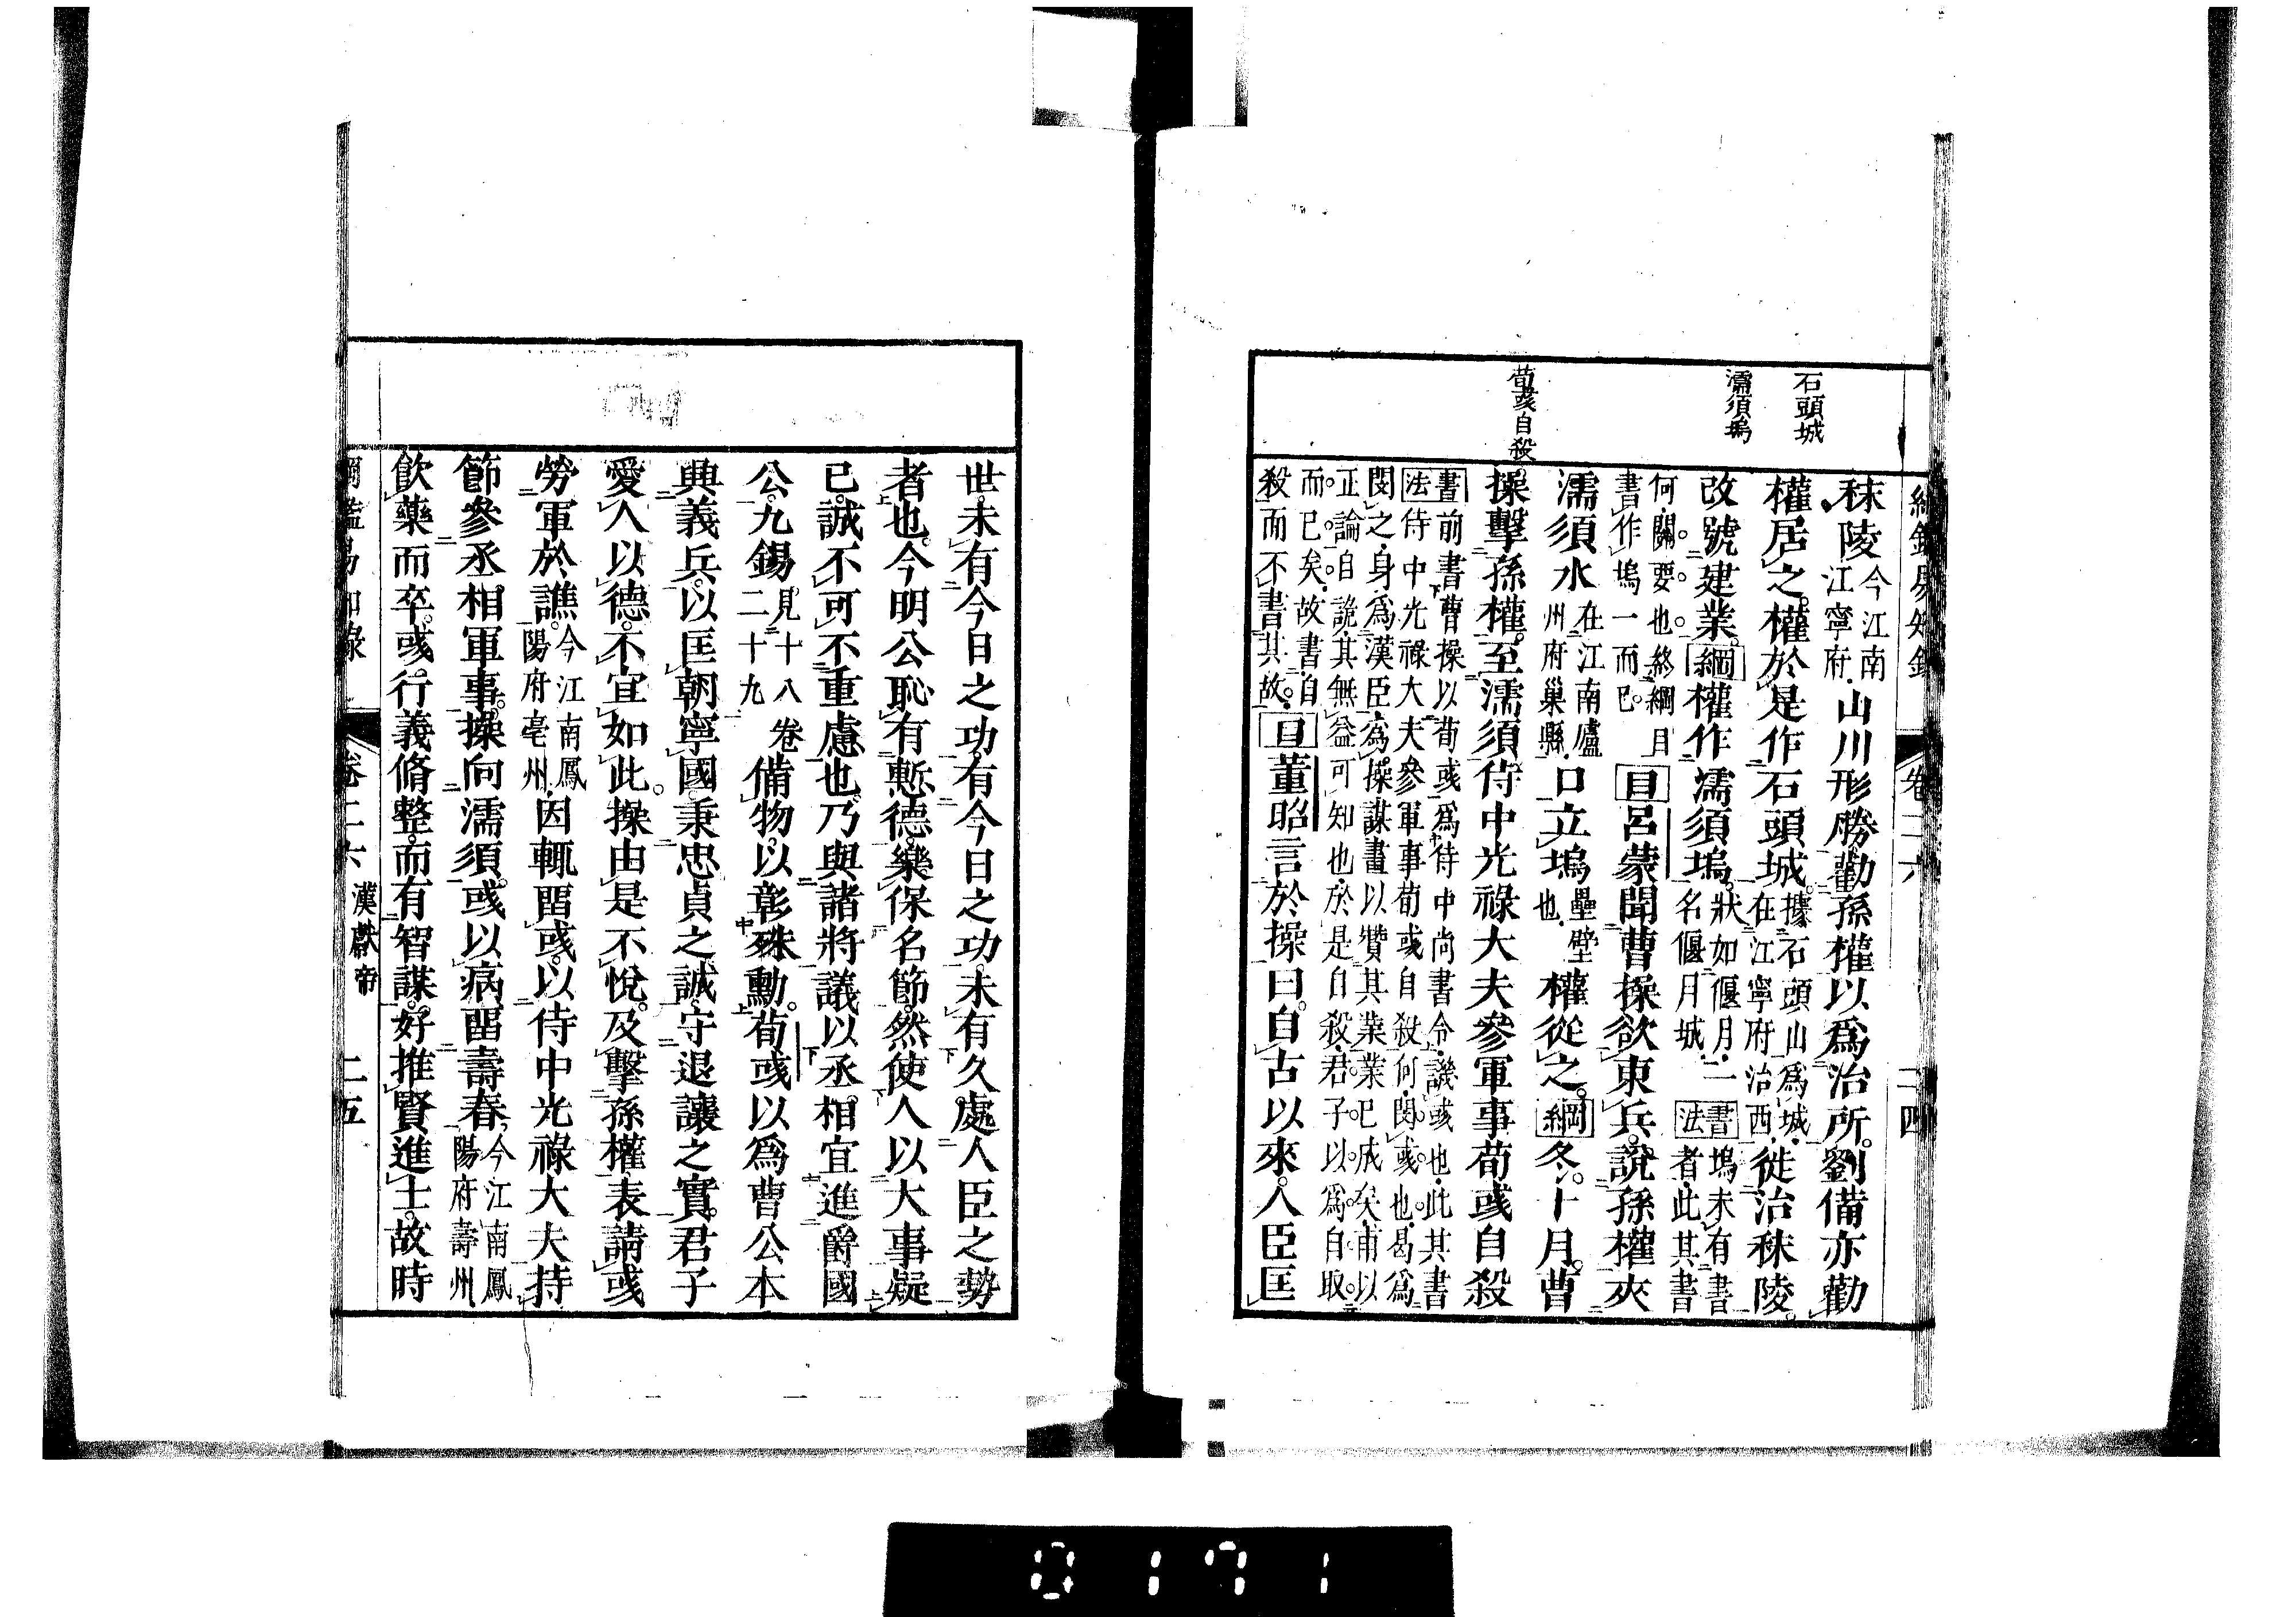 石頭城
濡須塢
荀彧自殺
秣陵今江南江寧府山川形勝勸孫權以爲治所劉備亦勸
權居之權於是作石頭城據石頭山爲城在江寧府治西徙治秣陵
改號建業綱權作濡須塢狀如偃月名偃月城二書法塢未有書者此其書
何關要也終綱目書作塢一而已目呂蒙聞曹操欲東兵說孫權夾
濡須水在江南廬州府巢縣口立塢壘壁也權從之綱冬十月曹
操擊孫權至濡須侍中光祿大夫參軍事荀彧自殺
書法前書曹操以荀彧爲侍中尚書令譏彧也此其書侍中光祿大夫參軍事荀彧自殺何閔彧也曷爲
閔之身爲漢臣爲操謀畫以贊其業業已成矣甫以正論自詭其無益可知也於是自殺君子以爲自取
而已矣故書自殺而不書其故目董昭言於操曰自古以來人臣匡
綱鑑易知錄 卷二六 二四
世未有今日之功有今日之功未有久處人臣之勢
者也今明公恥有慙德樂保名節然使人以大事疑
已誠不可不重慮也乃與諸將議以丞相宜進爵國
公九錫見十八卷二十九備物以彰殊勳荀彧以爲曹公本
興義兵以匡朝寧國秉忠貞之誠守退讓之實君子
愛人以德不宜如此操由是不悅及擊孫權表請彧
勞軍於譙今江南鳳陽府亳州因輒留彧以侍中光祿大夫持
節參丞相軍事操向濡須彧以病留壽春今江南鳳陽府壽州
飲藥而卒彧行義脩整而有智謀好推賢進士故時
綱鑑易知錄 卷二六 漢獻帝 二五
0171